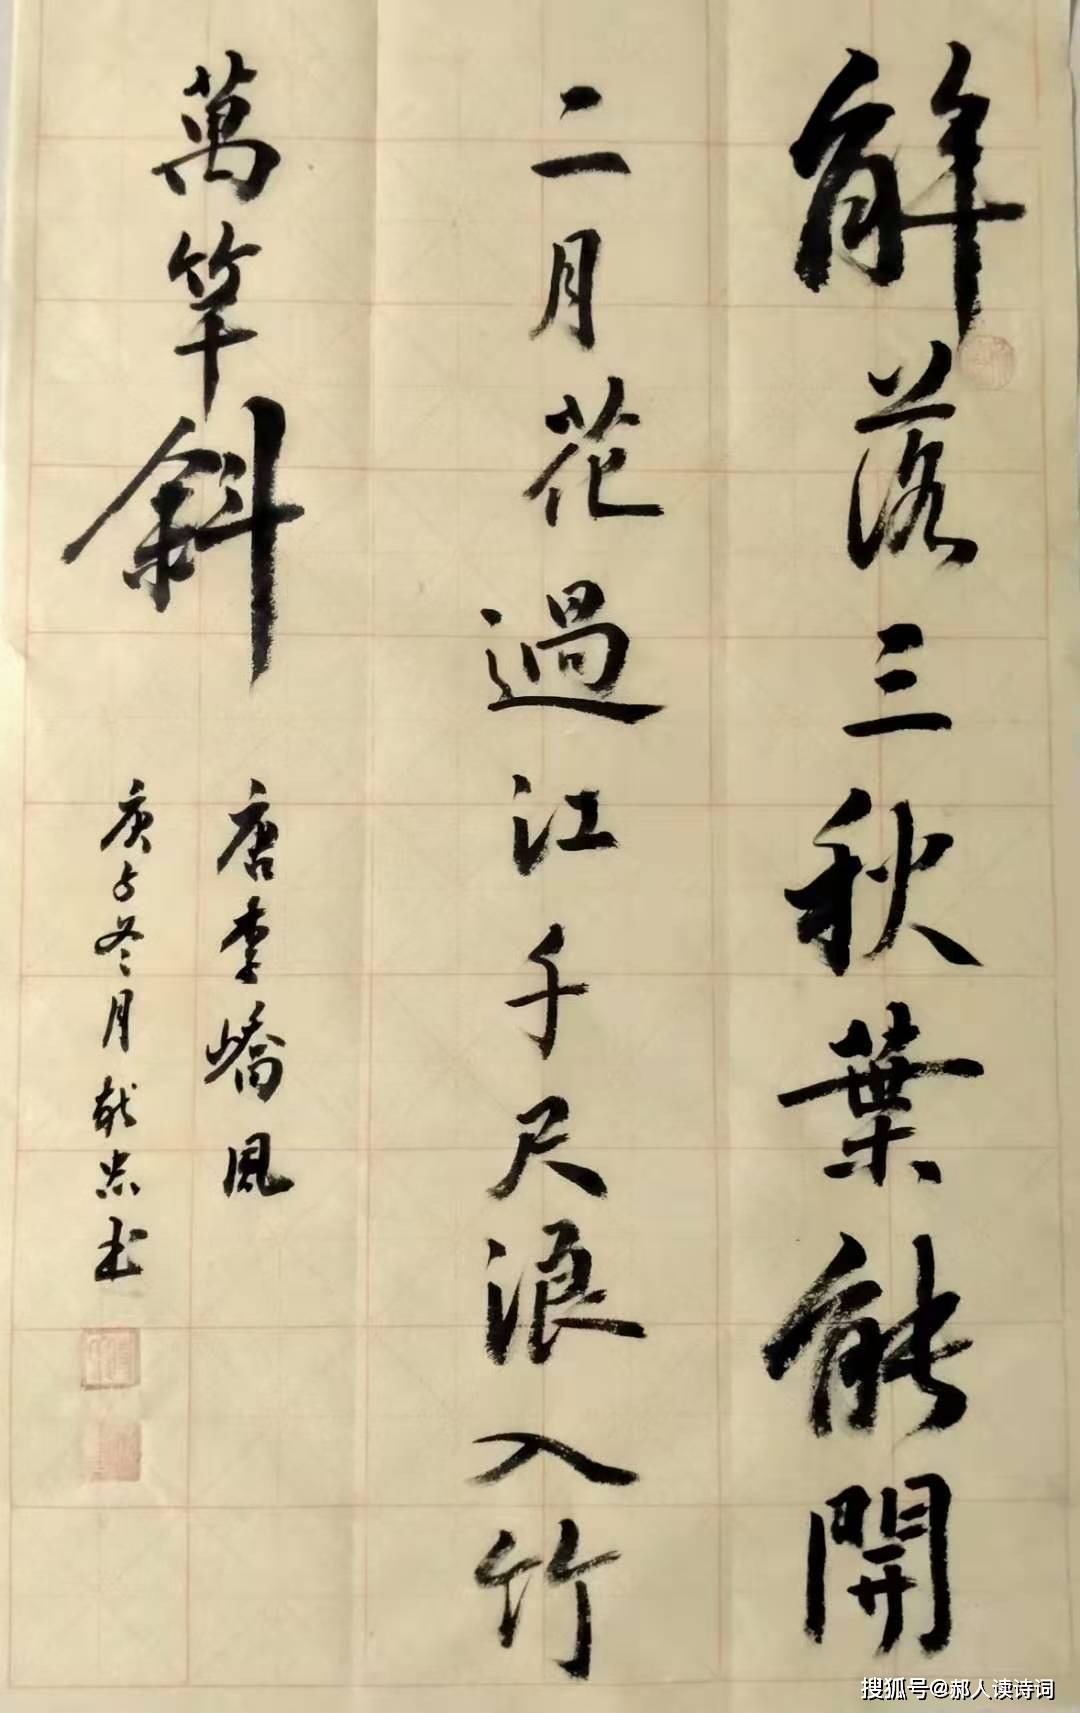 解落三秋葉能開
二月花過江千尺浪入竹
萬竿斜
唐李嶠風
庚子冬月献忠书
搜狐号@郝人读诗词